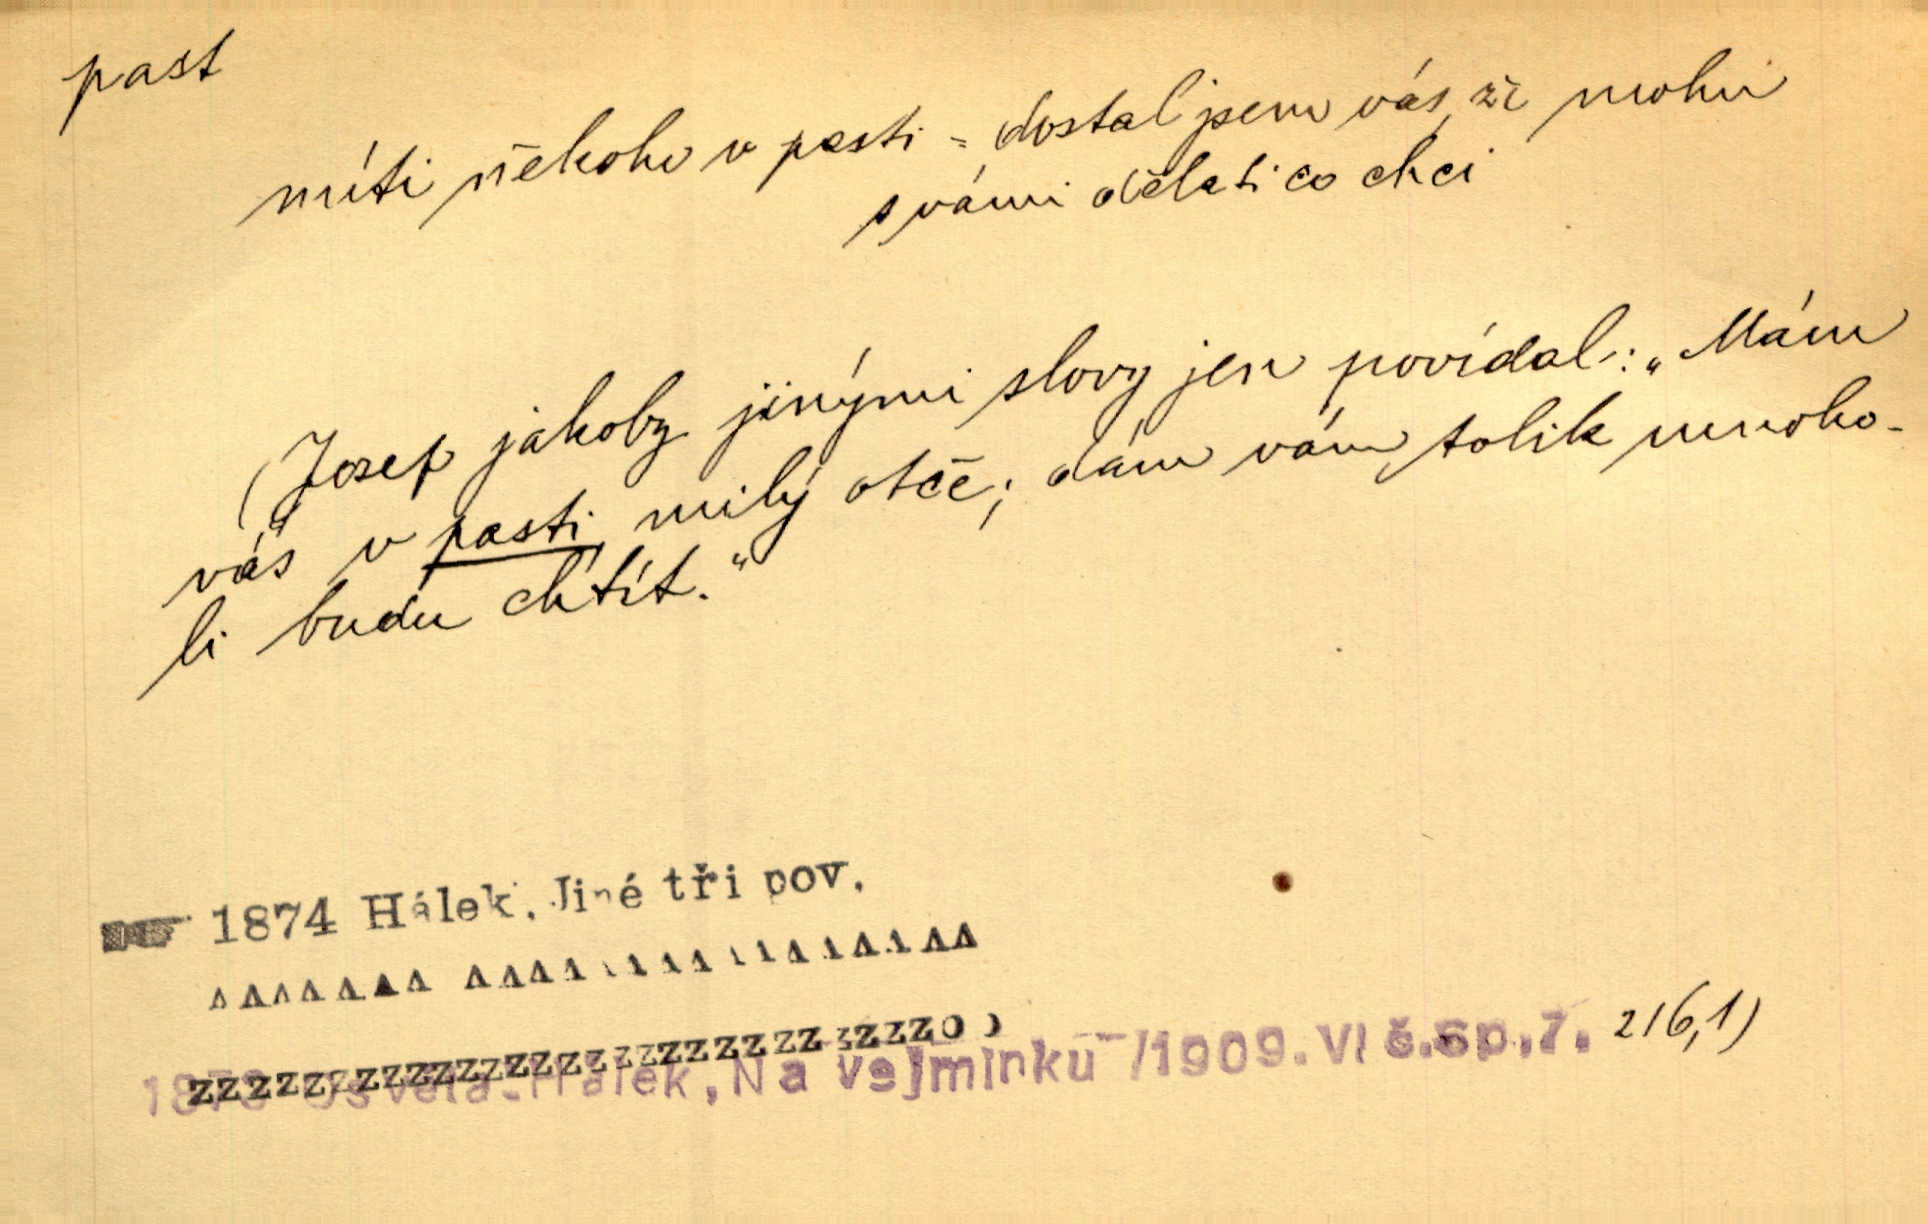 past
míti někoho v pasti = dostal jsem vás, že mohu
s vámi dělati co chci
(Josef jakoby jinými slovy jen povídal: „Mám
vás v pasti, milý otče; dám vám, tolik mnoho-
li budu chtít.“
☛ 1874 Hálek, Jiné tři pov.
Hálek, Na vejminku /1909. VI č.sp.7. 216,1)